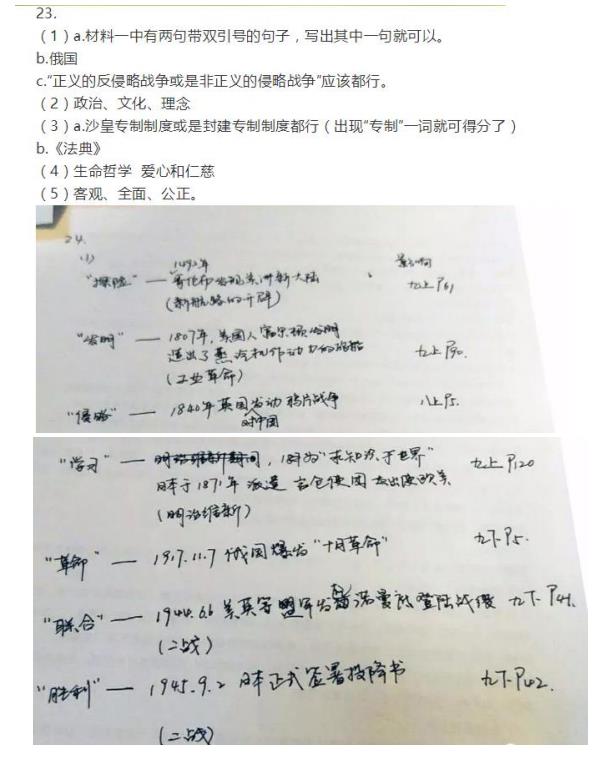 23.
（1）a.材料一中有两句带双引号的句子，写出其中一句就可以。
b.俄国
c.“正义的反侵略战争或是非正义的侵略战争”应该都行。
（2）政治、文化、理念
（3）a.沙皇专制制度或是封建专制制度都行（出现“专制”一词就可得分了）
b.《法典》
（4）生命哲学 爱心和仁慈
（5）客观、全面、公正。
24.
(1)
1492年
“探险” — 哥伦布发现美洲新大陆 九上P61
(新航路的开辟)
“发明” — 1807年，美国人富尔顿发明 九上P90.
造出了蒸汽机作动力的轮船
(工业革命)
“侵略” — 1840年英国发动鸦片战争 八上P5.
对中国
“学习” — 明治维新期间，以为“求知识于世界” 九上P120
日本于1871年派遣岩仓使团出使欧美
(明治维新)
“革命” — 1917.11.7 俄国爆发“十月革命” 九下P5.
“联合” — 1944.6.6 美英等盟军发动诺曼底登陆战役 九下P41.
(二战)
“胜利” — 1945.9.2 日本正式签署投降书 九下P42.
(二战)